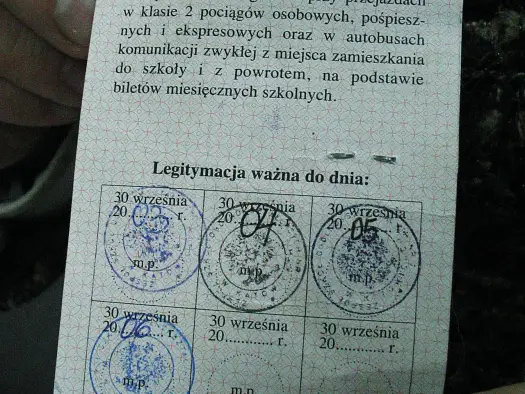 w klasie 2 pociągów osobowych, pośpiesz-
nych i ekspresowych oraz w autobusach
komunikacji zwykłej z miejsca zamieszkania
do szkoły i z powrotem, na podstawie
biletów miesięcznych szkolnych.
Legitymacja ważna do dnia:
30 września 30 września 30 września
20 03 r. 20 04 r. 20 05 r.
m.p. m.p. m.p.
30 września 30 września 30 września
20 06 r. 20............ r. 20............ r.
m.p. m.p.